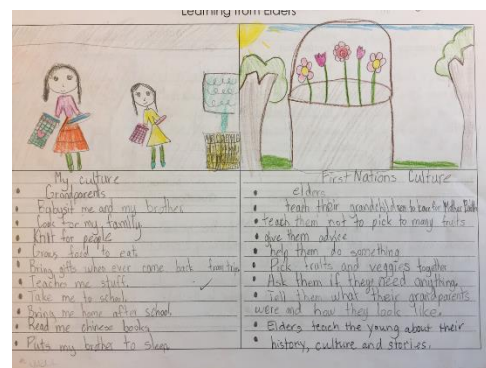 Learning from Elders
My culture
Grandparents
Babysit me and my brother
Cook for my family
Knit for people
Grows food to eat
Bring gifts when ever come back from trips
Teaches me stuff
Take me to school
Bring me home after school
Read me chinese books
Puts my brother to sleep
First Nations Culture
elders
teach their grandchildren to care for Mother Earth
teach them not to pick to many fruits
give them advice
help them do something
Pick fruits and veggies together
Ask them if they need anything.
Tell them what their grandparents
were and how they look like.
Elders teach the young about their
history, culture and stories.